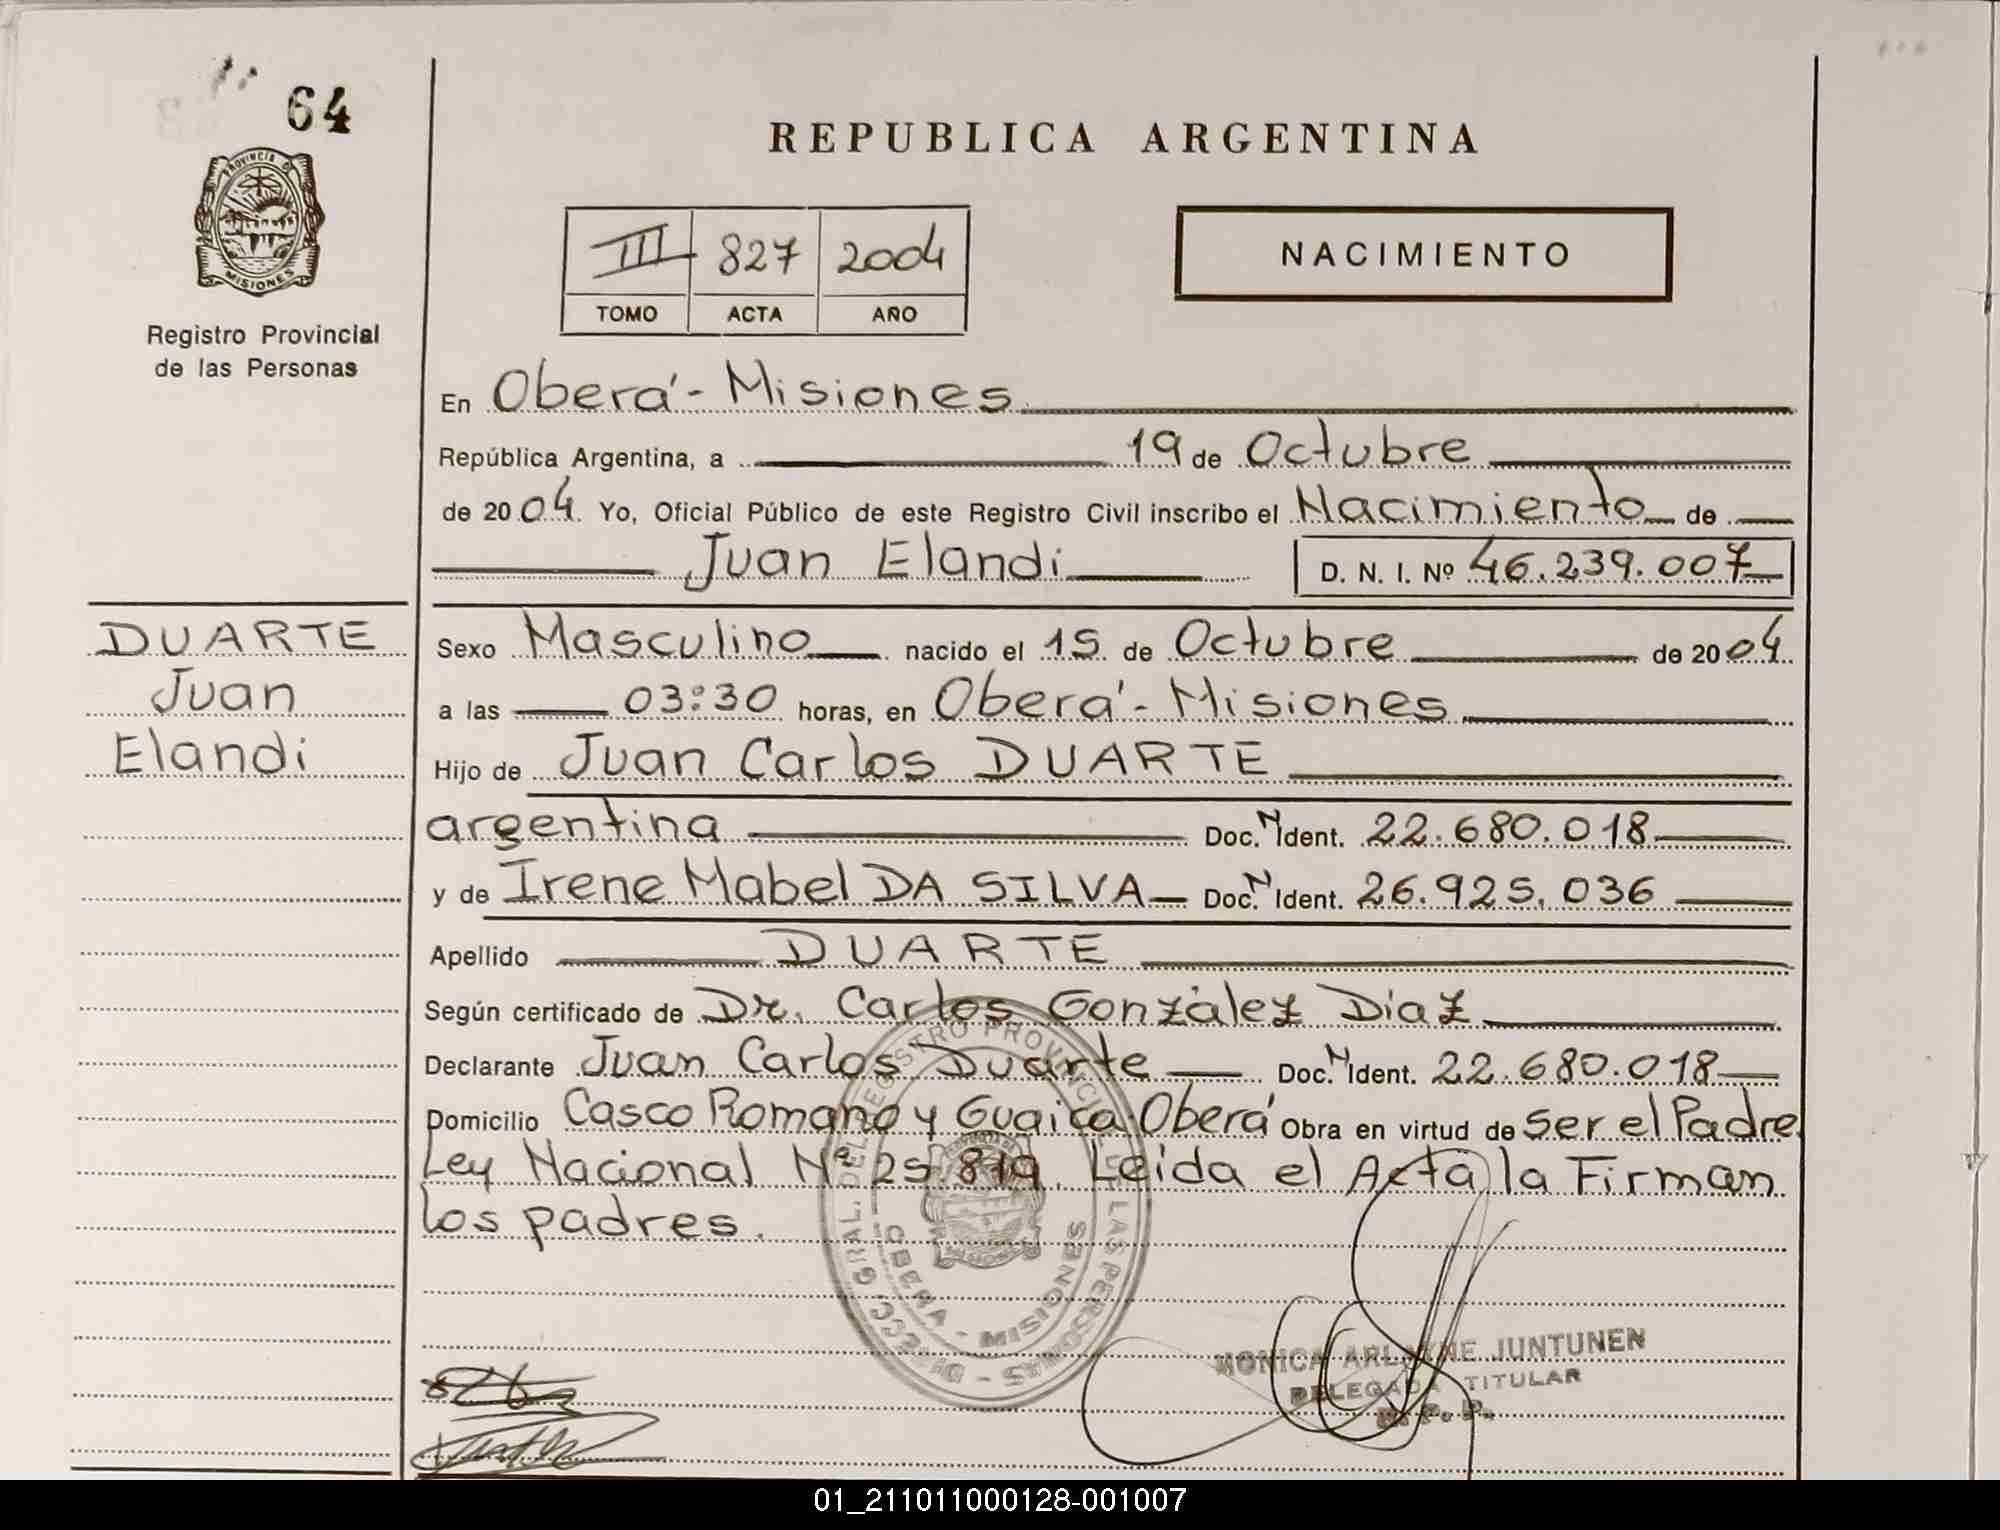 64
PROVINCIA D
MISIONES
Registro Provincial
de las Personas
REPUBLICA ARGENTINA
III 827 2004
TOMO ACTA AÑO
NACIMIENTO
En Oberá - Misiones
República Argentina, a 19 de Octubre
de 2004. Yo, Oficial Público de este Registro Civil inscribo el Nacimiento de
Juan Elandi D. N. I. Nº 46.239.007
DUARTE
Juan
Elandi
Sexo Masculino nacido el 15 de Octubre de 2004.
a las 03:30 horas, en Oberá - Misiones
Hijo de Juan Carlos DUARTE
argentina Doc. N Ident. 22.680.018
y de Irene Mabel DA SILVA Doc. N Ident. 26.925.036
Apellido DUARTE
Según certificado de Dr. Carlos González Diaz
Declarante Juan Carlos Duarte Doc. N Ident. 22.680.018
Domicilio Casco Romano y Guaica. Oberá Obra en virtud de ser el Padre.
Ley Nacional Nº 25.819. Leida el Acta, la Firman
los padres.
DIRECC. GRAL. DEL REGISTRO PROVINCIAL DE LAS PERSONAS
OBERA - MISIONES
MONICA ARLAYNE JUNTUNEN
DELEGADA TITULAR
R. P. P.
01_211011000128-001007